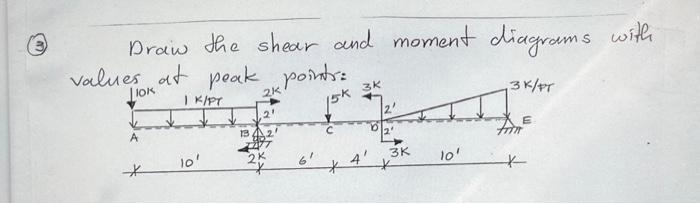 ③ Draw the shear and moment diagrams with
values at peak points:
10K 1 K/FT 2K 5K 3K 3 K/FT
2' 2'
A B 2' C D 2' E
2K 3K
10' 6' 4' 10'